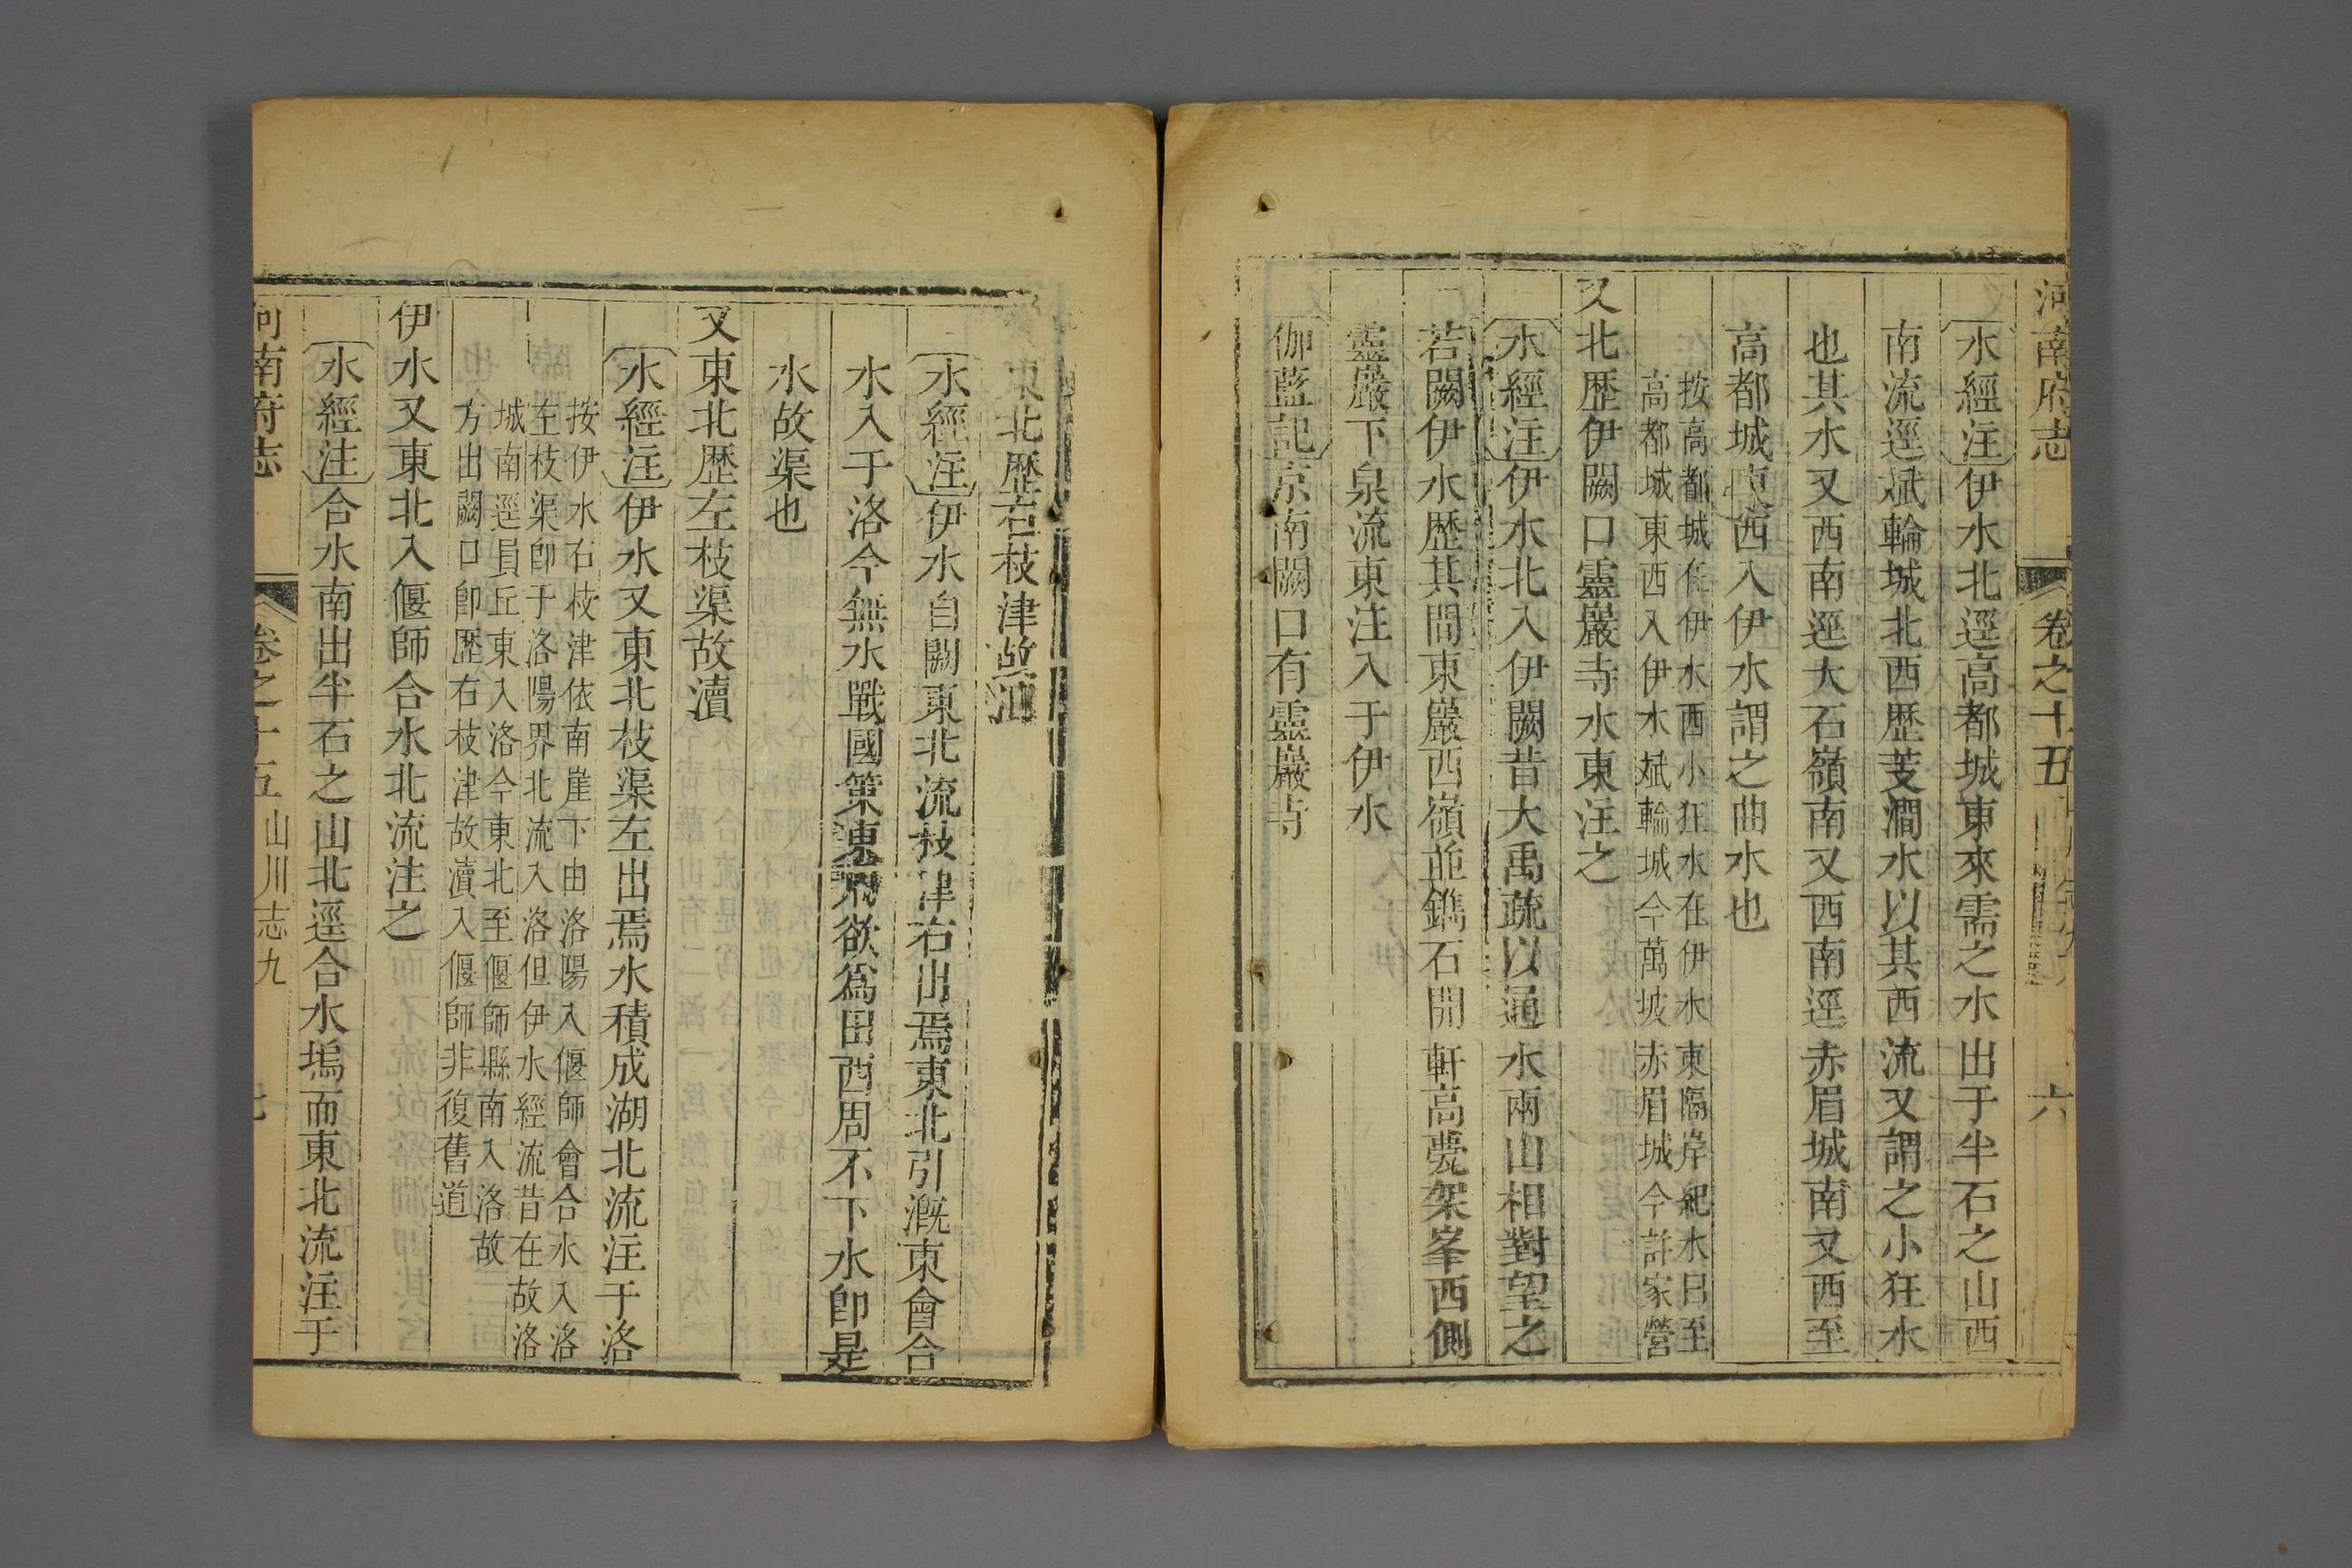 河南府志 卷之十五 六
水經注伊水北逕高都城東來需之水出于半石之山西
南流逕斌輪城北西歷芰澗水以其西流又謂之小狂水
也其水又西南逕大石嶺南又西南逕赤眉城南又西至
高都城東西入伊水謂之曲水也
按高都城在伊水西小狂水在伊水東隔岸紀水曰至
高都城東西入伊水斌輪城今萬坡赤眉城今許家營
又北歷伊闕口靈巖寺水東注之
水經注伊水北入伊闕昔大禹疏以通水兩山相對望之
若闕伊水歷其間東巖西嶺並鐫石開軒高甍架峯西側
靈巖下泉流東注入于伊水
伽藍記京南闕口有靈巖寺
東北歷右枝津故瀆
水經注伊水自闕東北流枝津右出焉東北引溉東會合
水入于洛今無水戰國策東周欲為田西周不下水卽是
水故渠也
又東北歷左枝渠故瀆
水經注伊水又東北枝渠左出焉水積成湖北流注于洛
按伊水石枝津依南崖下由洛陽入偃師會合水入洛
左枝渠卽于洛陽界北流入洛但伊水經流昔在故洛
城南逕員丘東入洛今東北至偃師縣南入洛故
方出闕口卽歷右枝津故瀆入偃師非復舊道
伊水又東北入偃師合水北流注之
水經注合水南出半石之山北逕合水塢而東北流注于
河南府志 卷之十五 山川志九 七